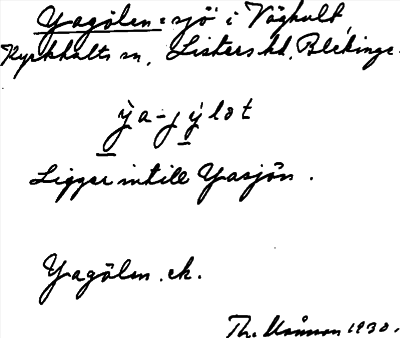 Yagölen = sjö i Våghult,
Kyrkhults sn, Listers hd, Blekinge.
ỳa-jýlət
Ligger intill Yasjön.
Yagölen. ek.
Th. 1930.